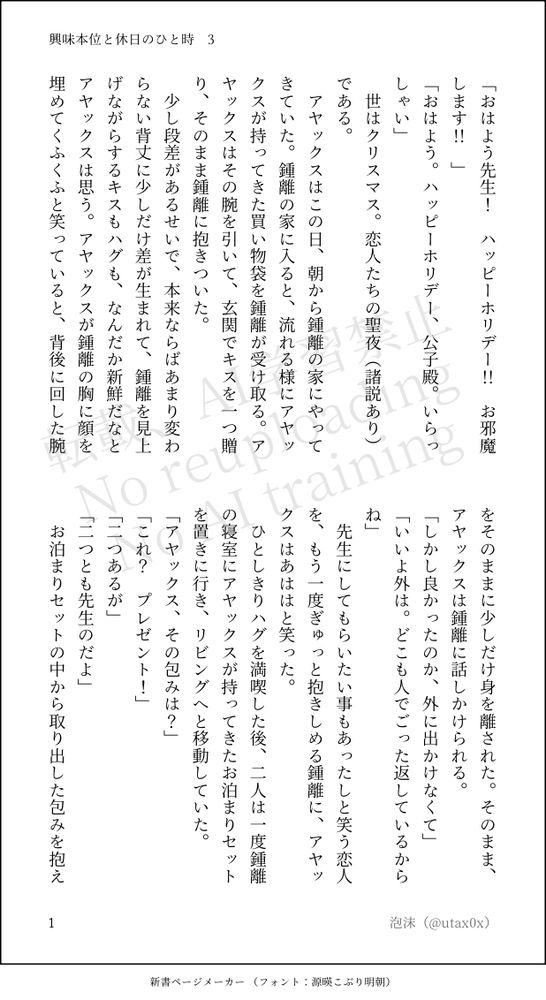 興味本位と休日のひと時　3
「おはよう先生！　ハッピーホリデー!!　お邪魔
します!!　」
「おはよう。ハッピーホリデー、公子殿。いらっ
しゃい」
　世はクリスマス。恋人たちの聖夜（諸説あり）
である。
　アヤックスはこの日、朝から鍾離の家にやって
きていた。鍾離の家に入ると、流れる様にアヤッ
クスが持ってきた買い物袋を鍾離が受け取る。ア
ヤックスはその腕を引いて、玄関でキスを一つ贈
り、そのまま鍾離に抱きついた。
　少し段差があるせいで、本来ならばあまり変わ
らない背丈に少しだけ差が生まれて、鍾離を見上
げながらするキスもハグも、なんだか新鮮だなと
アヤックスは思う。アヤックスが鍾離の胸に顔を
埋めてくふくふと笑っていると、背後に回した腕
をそのままに少しだけ身を離された。そのまま、
アヤックスは鍾離に話しかけられる。
「しかし良かったのか、外に出かけなくて」
「いいよ外は。どこも人でごった返しているから
ね」
　先生にしてもらいたい事もあったしと笑う恋人
を、もう一度ぎゅっと抱きしめる鍾離に、アヤッ
クスはあははと笑った。
　ひとしきりハグを満喫した後、二人は一度鍾離
の寝室にアヤックスが持ってきたお泊まりセット
を置きに行き、リビングへと移動していた。
「アヤックス、その包みは？」
「これ？　プレゼント！」
「二つあるが」
「二つとも先生のだよ」
　お泊まりセットの中から取り出した包みを抱え
転載、AI学習禁止
No reuploading
No AI training
1
泡沫（@utax0x）
新書ページメーカー（フォント：源暎こぶり明朝）